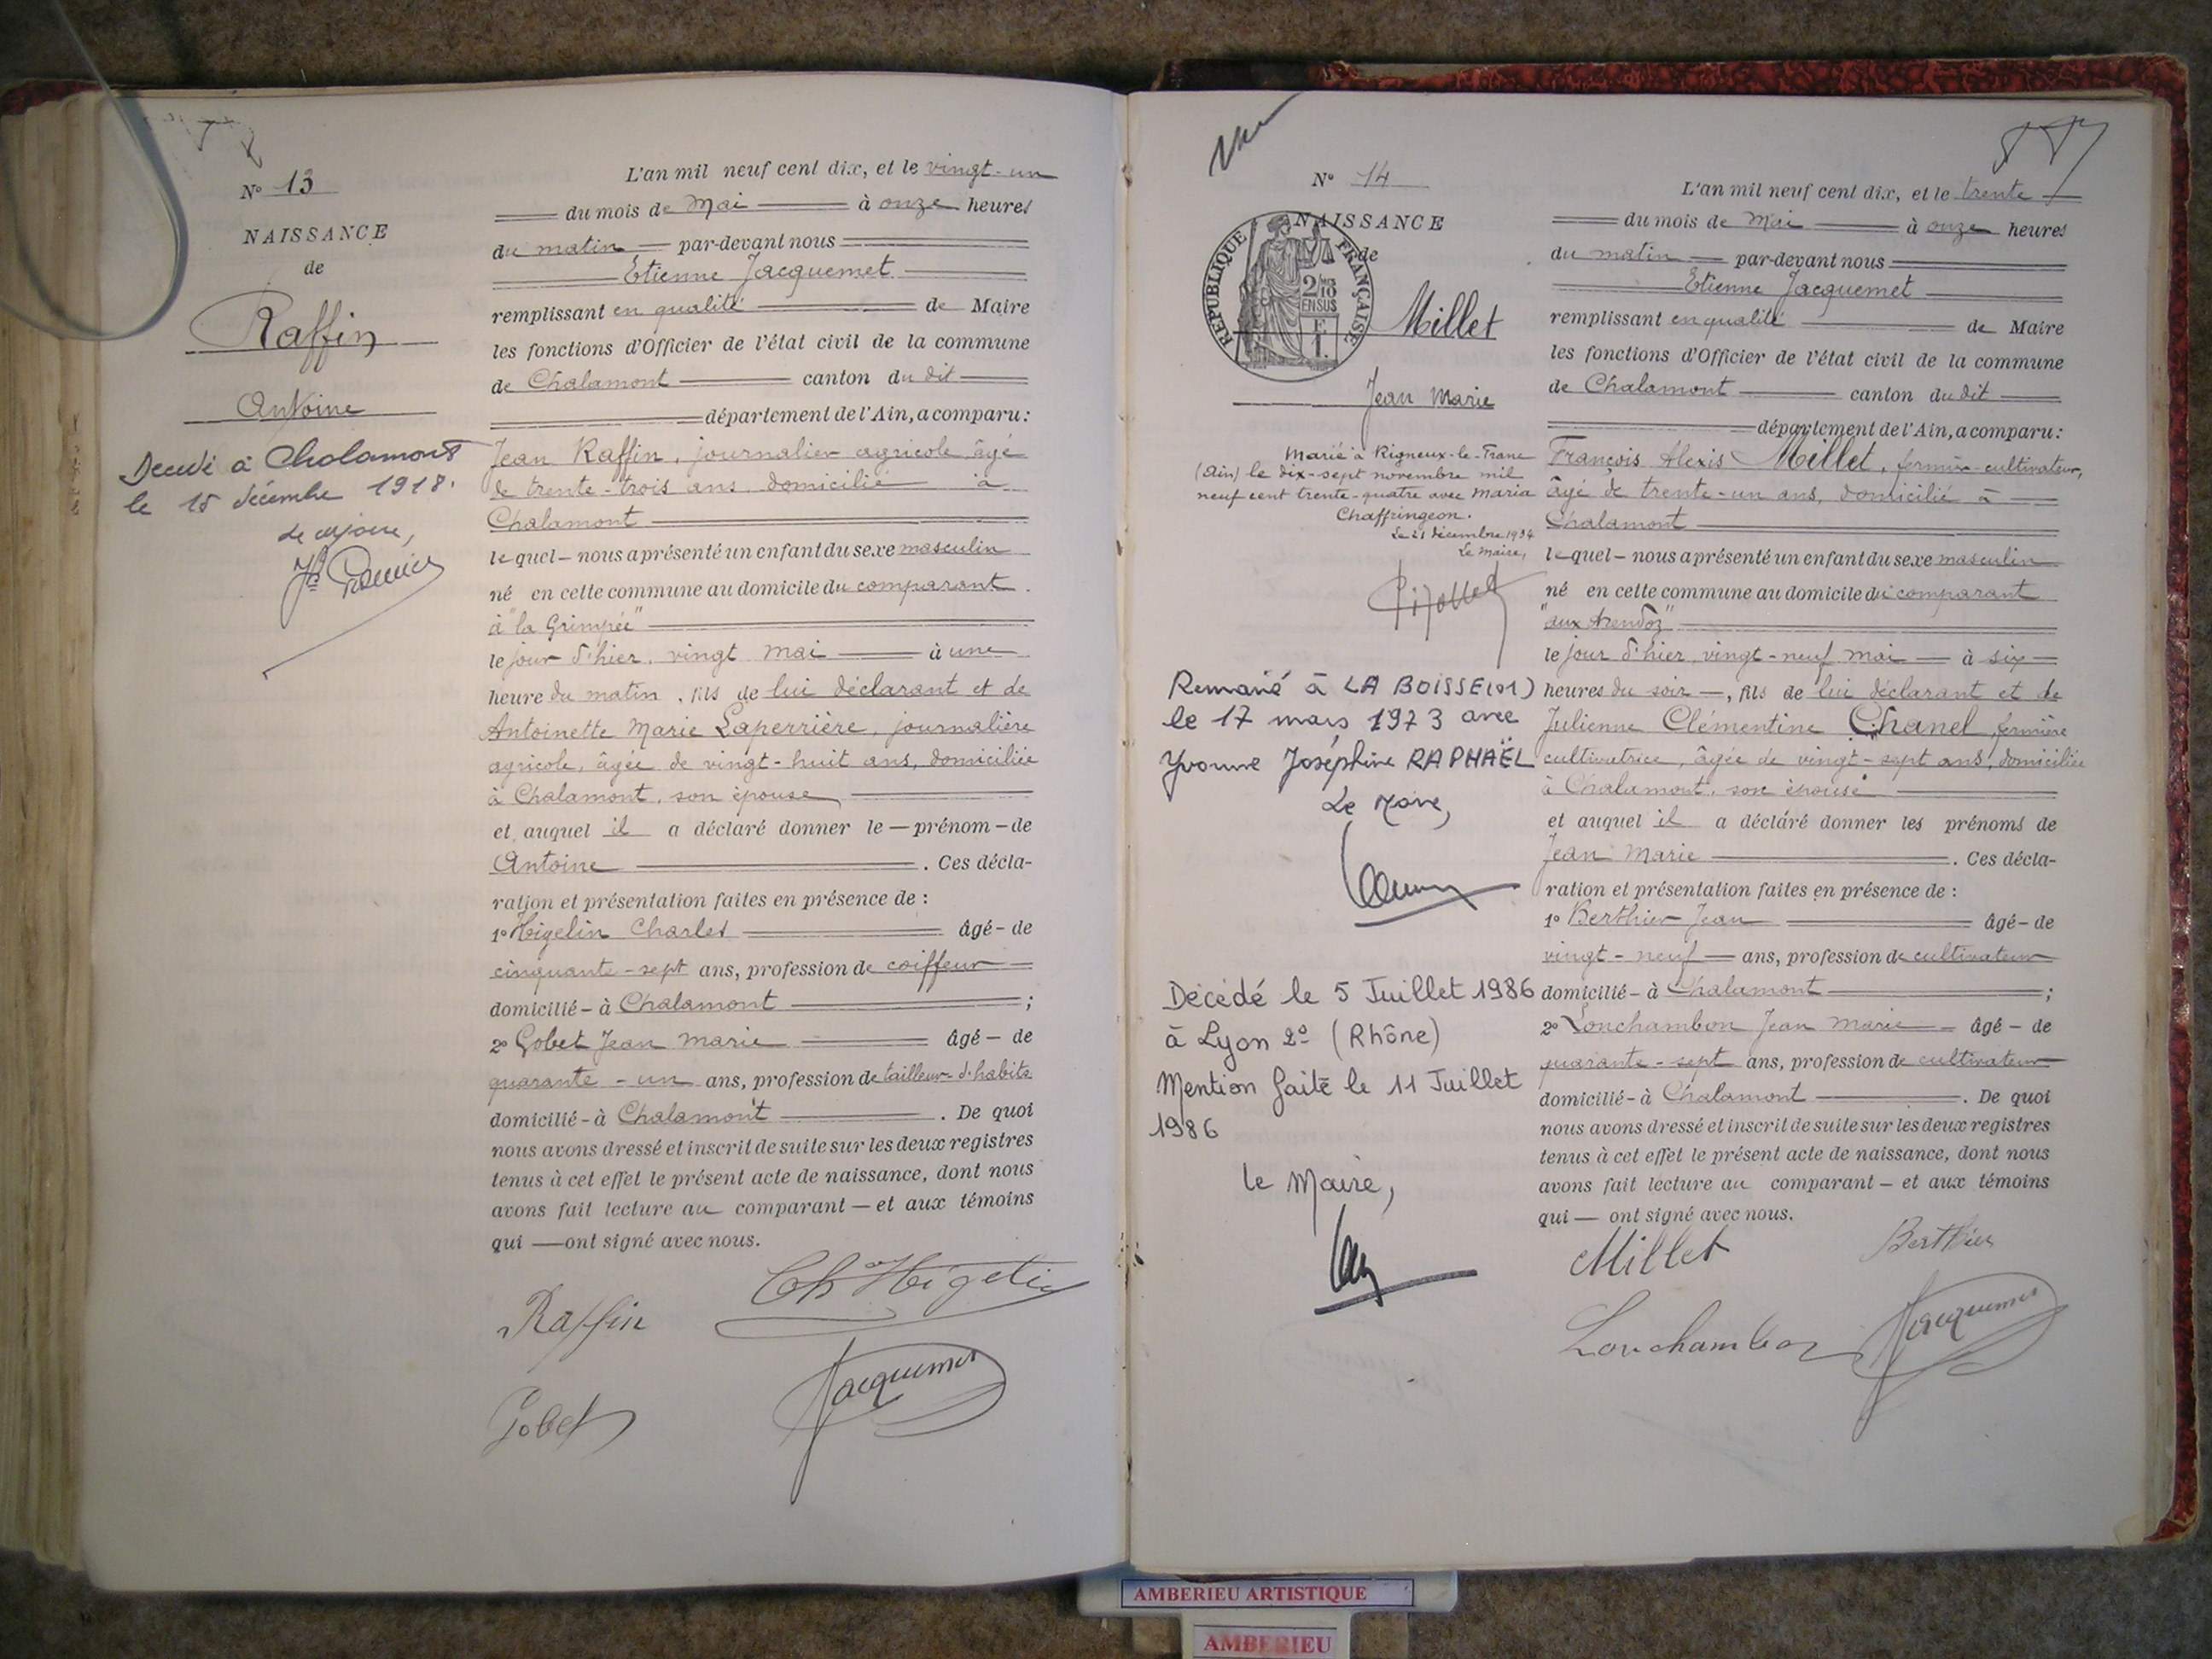 N° 13
NAISSANCE
de
Raffin
Antoine
Decédé à Chalamont
le 15 décembre 1918.
L'an mil neuf cent dix, et le vingt-un
du mois de Mai à onze heures
du matin par-devant nous
Etienne Jacquemet
remplissant en qualité de Maire
les fonctions d'Officier de l'état civil de la commune
de Chalamont canton du dit
département de l'Ain, a comparu:
Jean Raffin, journalier agricole âgé
de trente-trois ans domicilié à
Chalamont
lequel nous a présenté un enfant du sexe masculin
né en cette commune au domicile du comparant
à "la Grimpée"
le jour d'hier, vingt mai à une
heure du matin, fils de lui déclarant et de
Antoinette Marie Laperrière, journalière
agricole, âgée de vingt-huit ans, domiciliée
à Chalamont, son épouse
et auquel il a déclaré donner le prénom de
Antoine. Ces décla-
ration et présentation faites en présence de :
1° Higelin Charles âgé de
cinquante-sept ans, profession de coiffeur
domicilié à Chalamont ;
2° Gobet Jean Marie âgé de
quarante-un ans, profession de tailleur d'habits
domicilié à Chalamont. De quoi
nous avons dressé et inscrit de suite sur les deux registres
tenus à cet effet le présent acte de naissance, dont nous
avons fait lecture au comparant et aux témoins
qui ont signé avec nous.
Raffin
Ch Higelin
Gobet
Jacquemet
N° 14
NAISSANCE
de
REPUBLIQUE FRANÇAISE
2/10
EN SUS
Millet
Jean Marie
Marié à Rigneux-le-Franc
(Ain) le dix-sept novembre mil
neuf cent trente-quatre avec Maria
Chaffringeon.
Le 21 décembre 1934
Le Maire,
Remarié à LA BOISSE (01)
le 17 mars 1973 avec
Yvonne Joséphine RAPHAËL
Le Maire,
Décédé le 5 Juillet 1986
à Lyon 2° (Rhône)
Mention faite le 11 Juillet
1986
le Maire,
L'an mil neuf cent dix, et le trente
du mois de Mai à onze heures
du matin par-devant nous
Etienne Jacquemet
remplissant en qualité de Maire
les fonctions d'Officier de l'état civil de la commune
de Chalamont canton du dit
département de l'Ain, a comparu:
François Alexis Millet, fermier-cultivateur,
âgé de trente-un ans, domicilié à
Chalamont
lequel nous a présenté un enfant du sexe masculin
né en cette commune au domicile du comparant
"aux
le jour d'hier, vingt-neuf mai à six
heures du soir, fils de lui déclarant et de
Julienne Clémentine Chanel, fermière
cultivatrice, âgée de vingt-sept ans, domiciliée
à Chalamont, son épouse
et auquel il a déclaré donner les prénoms de
Jean Marie. Ces décla-
ration et présentation faites en présence de :
1° Berthier Jean âgé de
vingt-neuf ans, profession de cultivateur
domicilié à Chalamont ;
2° Lonchambon Jean Marie âgé de
quarante-sept ans, profession de cultivateur
domicilié à Chalamont. De quoi
nous avons dressé et inscrit de suite sur les deux registres
tenus à cet effet le présent acte de naissance, dont nous
avons fait lecture au comparant et aux témoins
qui ont signé avec nous.
Millet
Berthier
Lonchambon
Jacquemet
AMBERIEU ARTISTIQUE
AMBERIEU